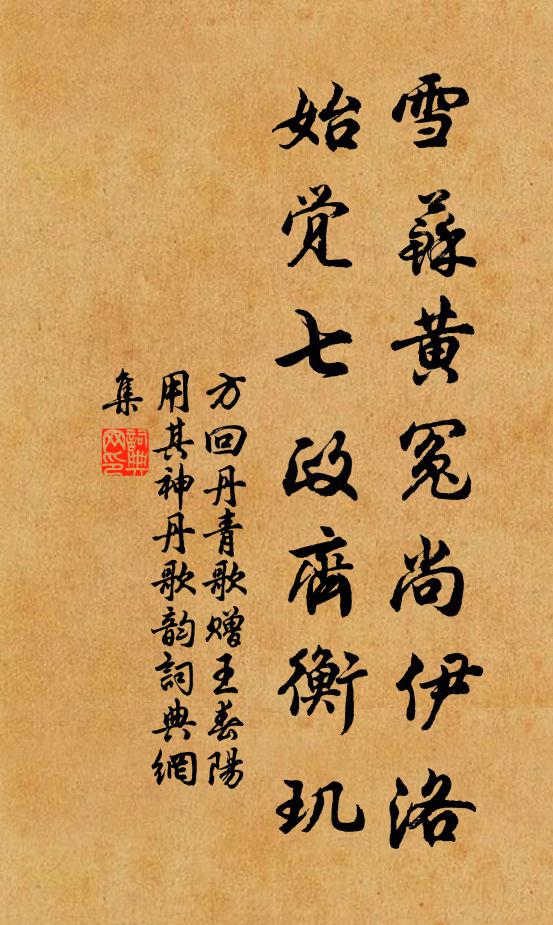 雪蘇黃冤尚伊洛
始覺七政齊衡玑
方回丹青歌贈王春陽
用其神丹歌韵詞典網
集
詞典网印